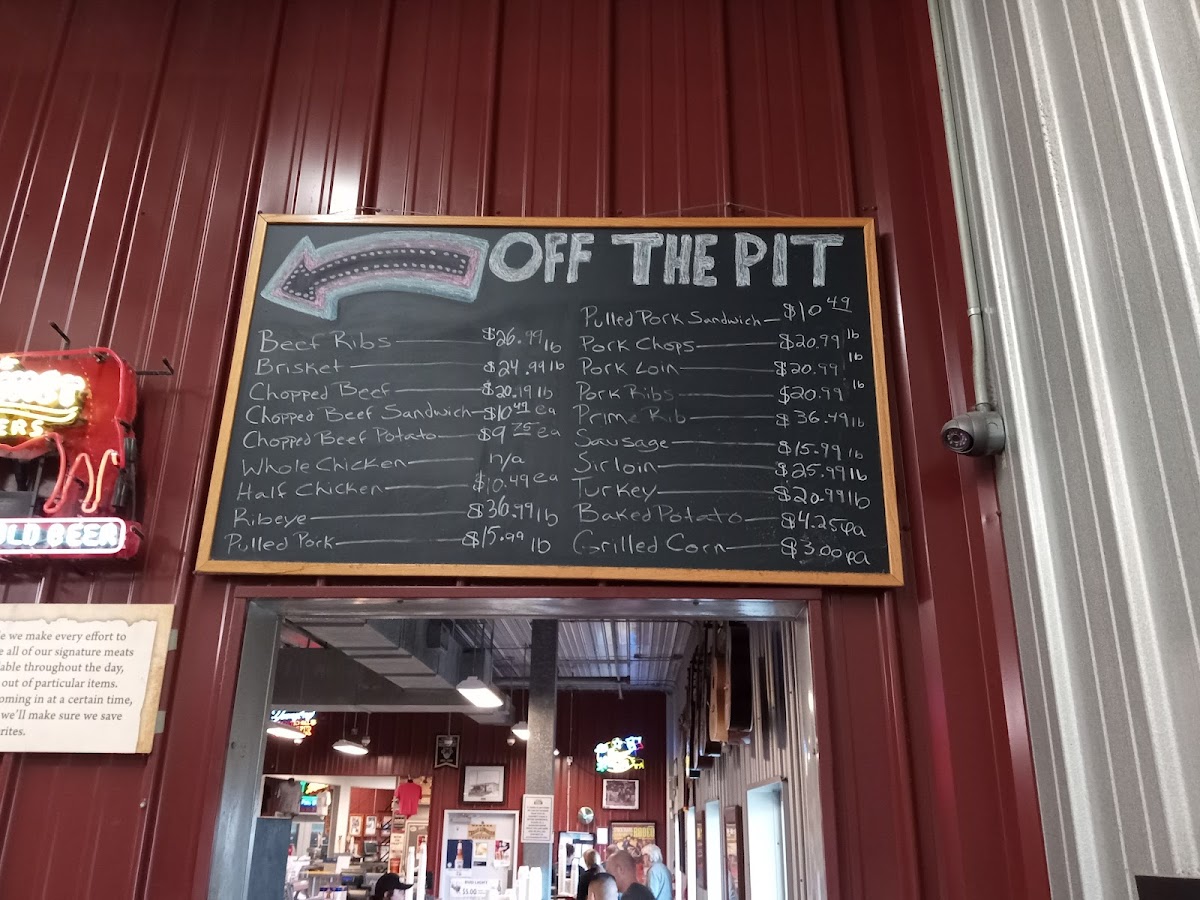 OFF THE PIT
Beef Ribs $26.99 lb
Brisket $24.99 lb
Chopped Beef $20.19 lb
Chopped Beef Sandwich $10.49 ea
Chopped Beef Potato $9.75 ea
Whole Chicken n/a
Half Chicken $10.49 ea
Ribeye $36.99 lb
Pulled Pork $15.99 lb
Pulled Pork Sandwich $10.49
Pork Chops $20.99 lb
Pork Loin $20.99 lb
Pork Ribs $20.99 lb
Prime Rib $36.49 lb
Sausage $15.99 lb
Sirloin $25.99 lb
Turkey $20.99 lb
Baked Potato $4.25 ea
Grilled Corn $3.00 ea
OLD BEER
we make every effort to
all of our signature meats
throughout the day,
out of particular items.
oming in at a certain time,
we'll make sure we save
rites.